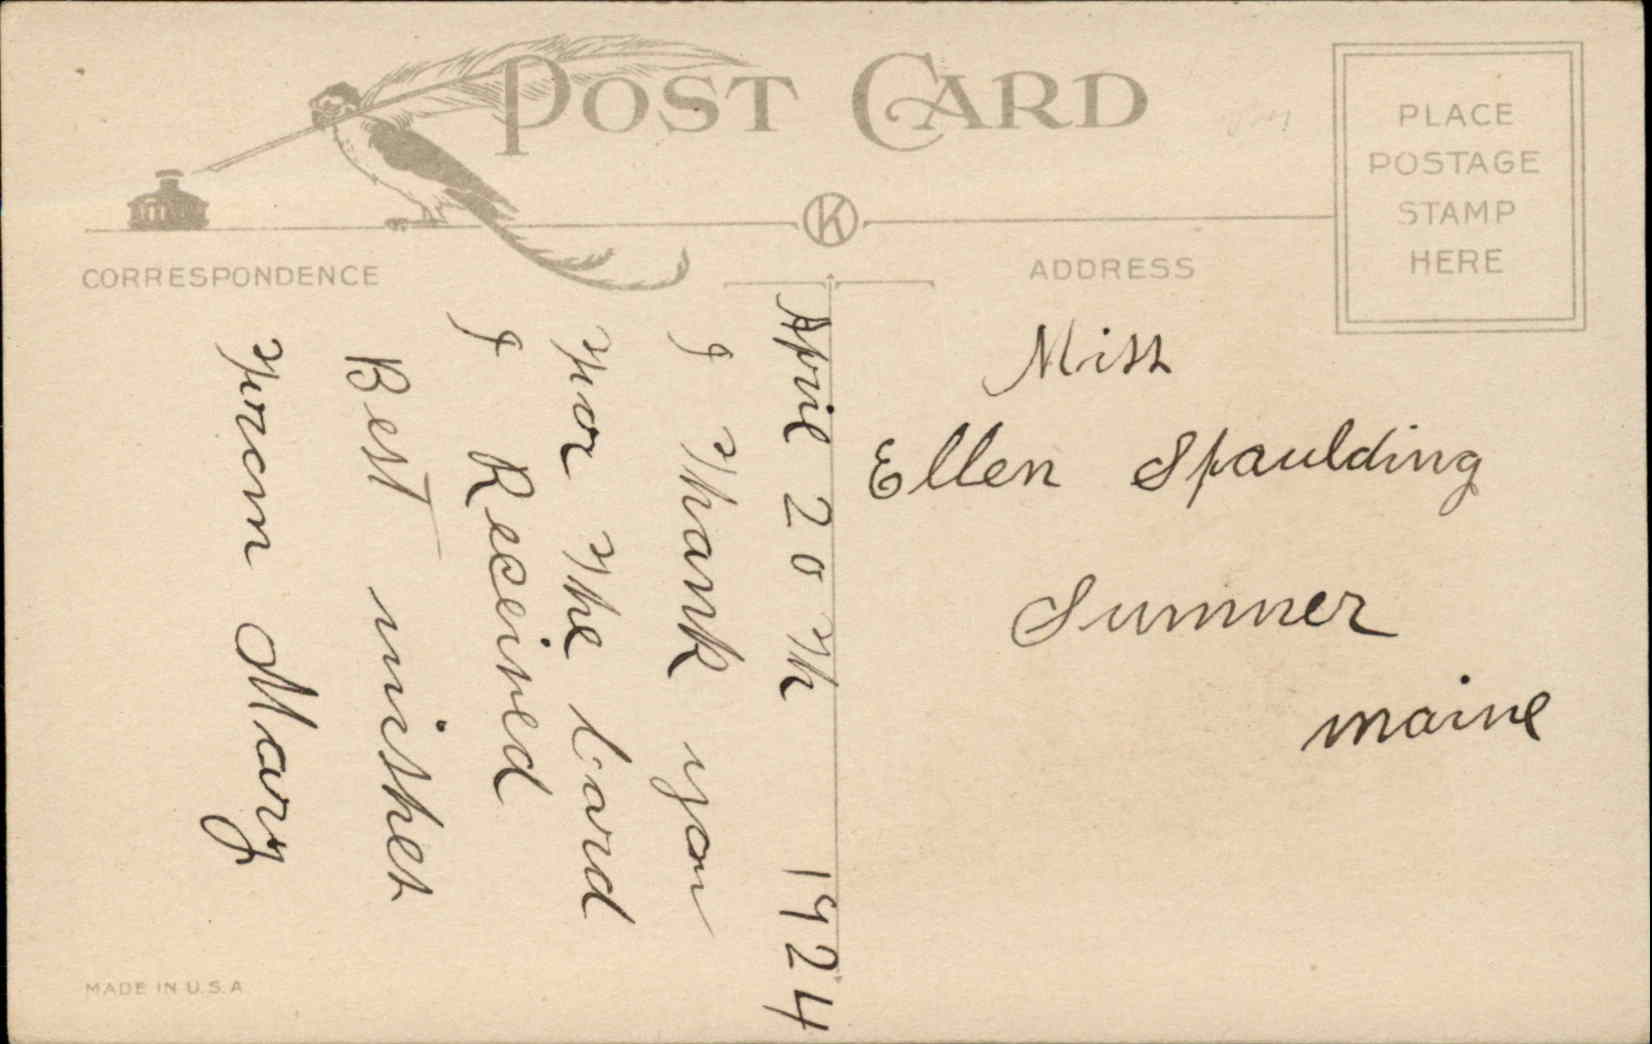 POST CARD
PLACE
POSTAGE
STAMP
HERE
K
CORRESPONDENCE
ADDRESS
April 20 th 1924
I Thank you
For The Card
I Received
Best wishes
From Mary
Miss
Ellen Spaulding
Sumner
maine
MADE IN U.S.A